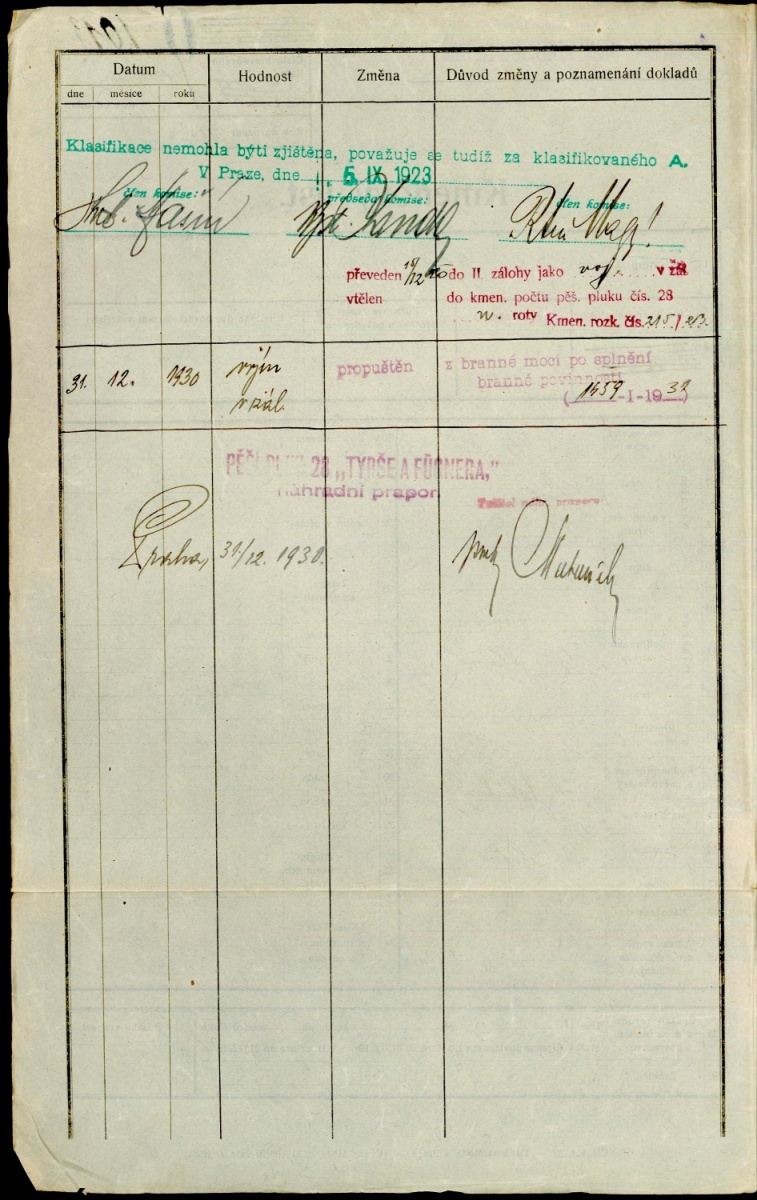 Datum Hodnost Změna Důvod změny a poznamenání dokladů
dne měsíce roku
Klasifikace nemohla býti zjištěna, považuje se tudíž za klasifikovaného A.
V Praze, dne 5. IX. 1923
člen komise: předseda komise: člen komise:
převeden do II. zálohy jako voj. v zál
vtělen do kmen. počtu pěš. pluku čís. 28
n. roty Kmen. rozk. čís. 215/23.
31. 12. 1930 propuštěn z branné moci po splnění
branné povinnosti
v zál.
(1459-I-1932)
PĚŠÍ PLUK 28 „TYRŠE A FÜGNERA,"
náhradní prapor
Praha, 31/12. 1930.